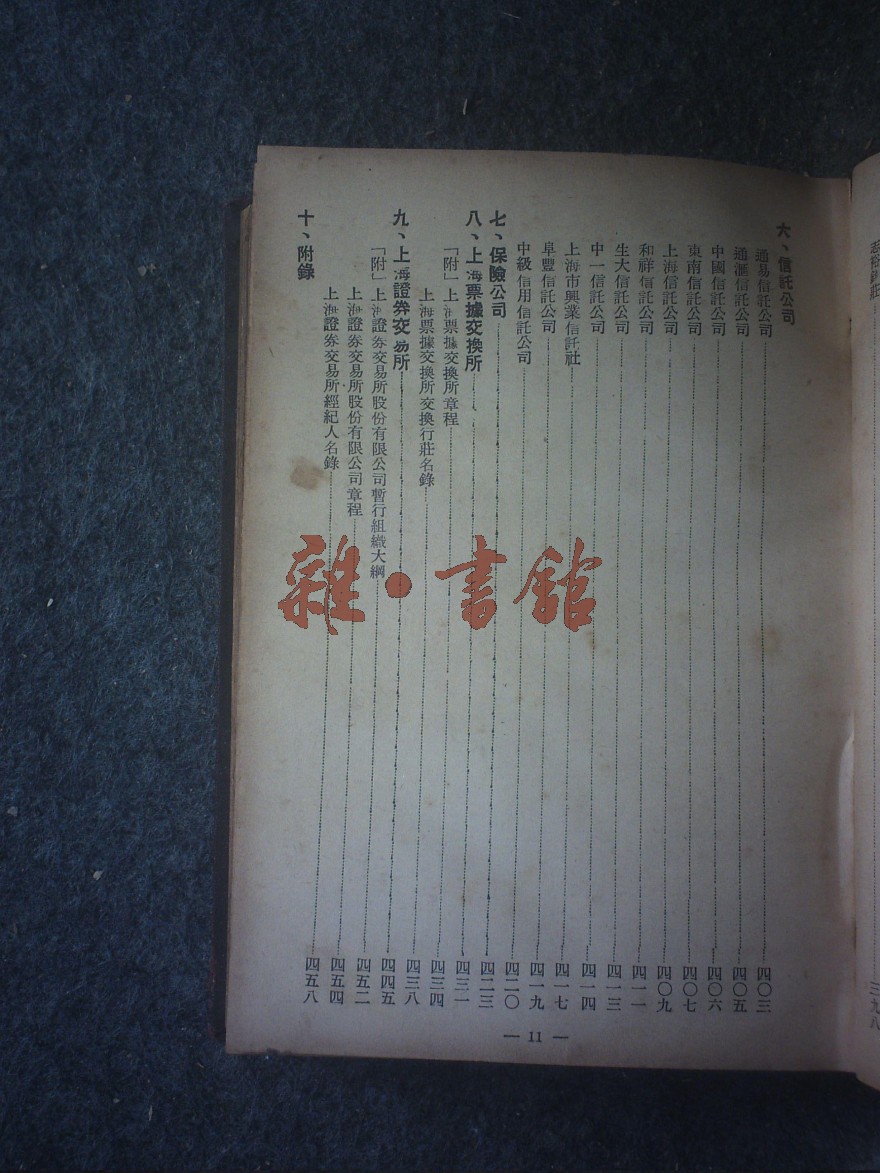 志裕錢莊……三九八
六、信託公司
通易信託公司……四〇三
通滙信託公司……四〇五
中國信託公司……四〇六
東南信託公司……四〇七
上海信託公司……四〇九
和祥信託公司……四一一
生大信託公司……四一三
中一信託公司……四一四
上海市興業信託社……四一七
阜豐信託公司……四一九
中級信用信託公司……四二〇
七、保險公司……四二三
八、上海票據交換所……四三二
「附」上海票據交換所章程……四三四
上海票據交換所交換行莊名錄……四三八
九、上海證券交易所……四四五
「附」上海證券交易所股份有限公司暫行組織大綱……四五二
上海證券交易所股份有限公司章程……四五四
上海證券交易所經紀人名錄……四五八
十、附錄
— 11 —
雜·書館